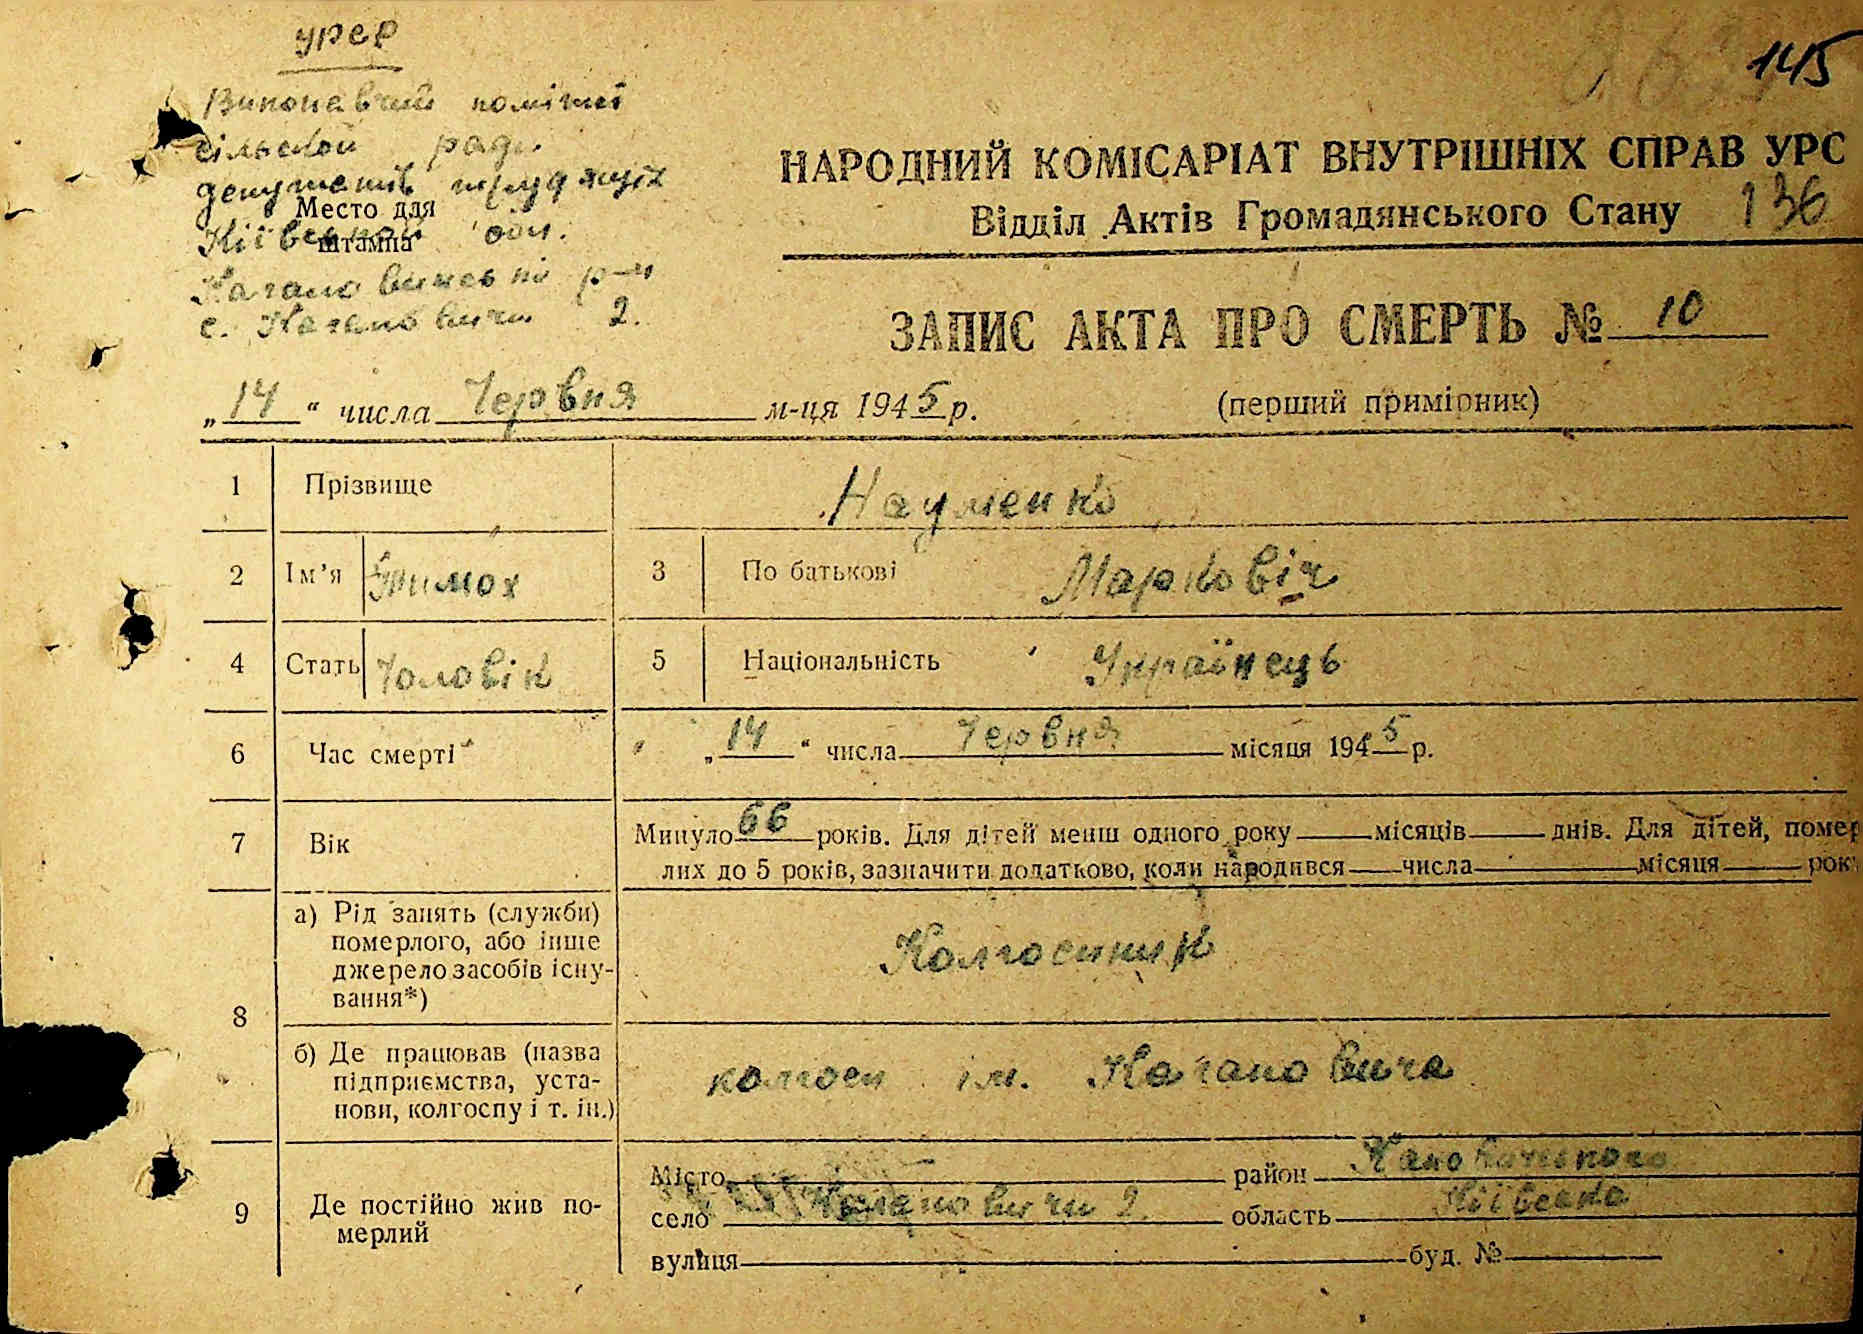 урер
145
Виконавчий комітет
сільской ради
депутатів трудящих
Место для
штампа
Київской обл.
Кагановичевкі р-н
с. Кагановичи 2.
НАРОДНИЙ КОМІСАРІАТ ВНУТРІШНІХ СПРАВ УРС
Відділ Актів Громадянського Стану 136
ЗАПИС АКТА ПРО СМЕРТЬ № 10
„14“ числа Червня м-ця 1945 р. (перший примірник)
1 Прізвище Науменко
2 Ім’я Тимох 3 По батькові Марковіч
4 Стать Чоловік 5 Національність Українець
6 Час смерті „14“ числа Червня місяця 1945 р.
7 Вік Минуло 66 років. Для дітей менш одного року місяців днів. Для дітей, помер
лих до 5 років, зазначити додатково, коли народився числа місяця рок
8 а) Рід занять (служби)
померлого, або інше
джерело засобів існу-
вання*) Колгоспник
б) Де працював (назва
підприємства, уста-
нови, колгоспу і т. ін.) колгосп ім. Кагановича
9 Де постійно жив по-
мерлий
Місто район
село Кагановичи 2. область Київска
вулиця буд. №